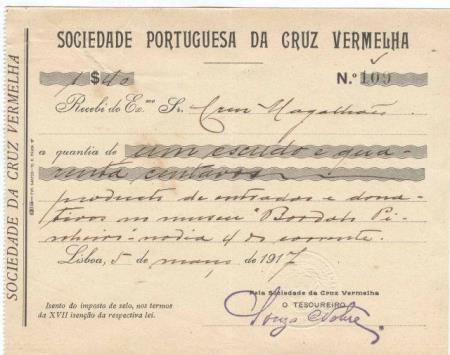 SOCIEDADE PORTUGUESA DA CRUZ VERMELHA
1$40 N.º 109
Recebi do Ex.mo Sr. Cruz Magalhães.
a quantia de um escudo e qua-
renta centavos
producto de entradas e dona-
tivos no museu "Bordalo Pi-
nheiro" no dia 4 do corrente.
Lisboa, 5 de março de 1917
Pela Sociedade da Cruz Vermelha
O TESOUREIRO
Isento do imposto de selo, nos termos
da XVII isenção da respectiva lei.
SOCIEDADE DA CRUZ VERMELHA